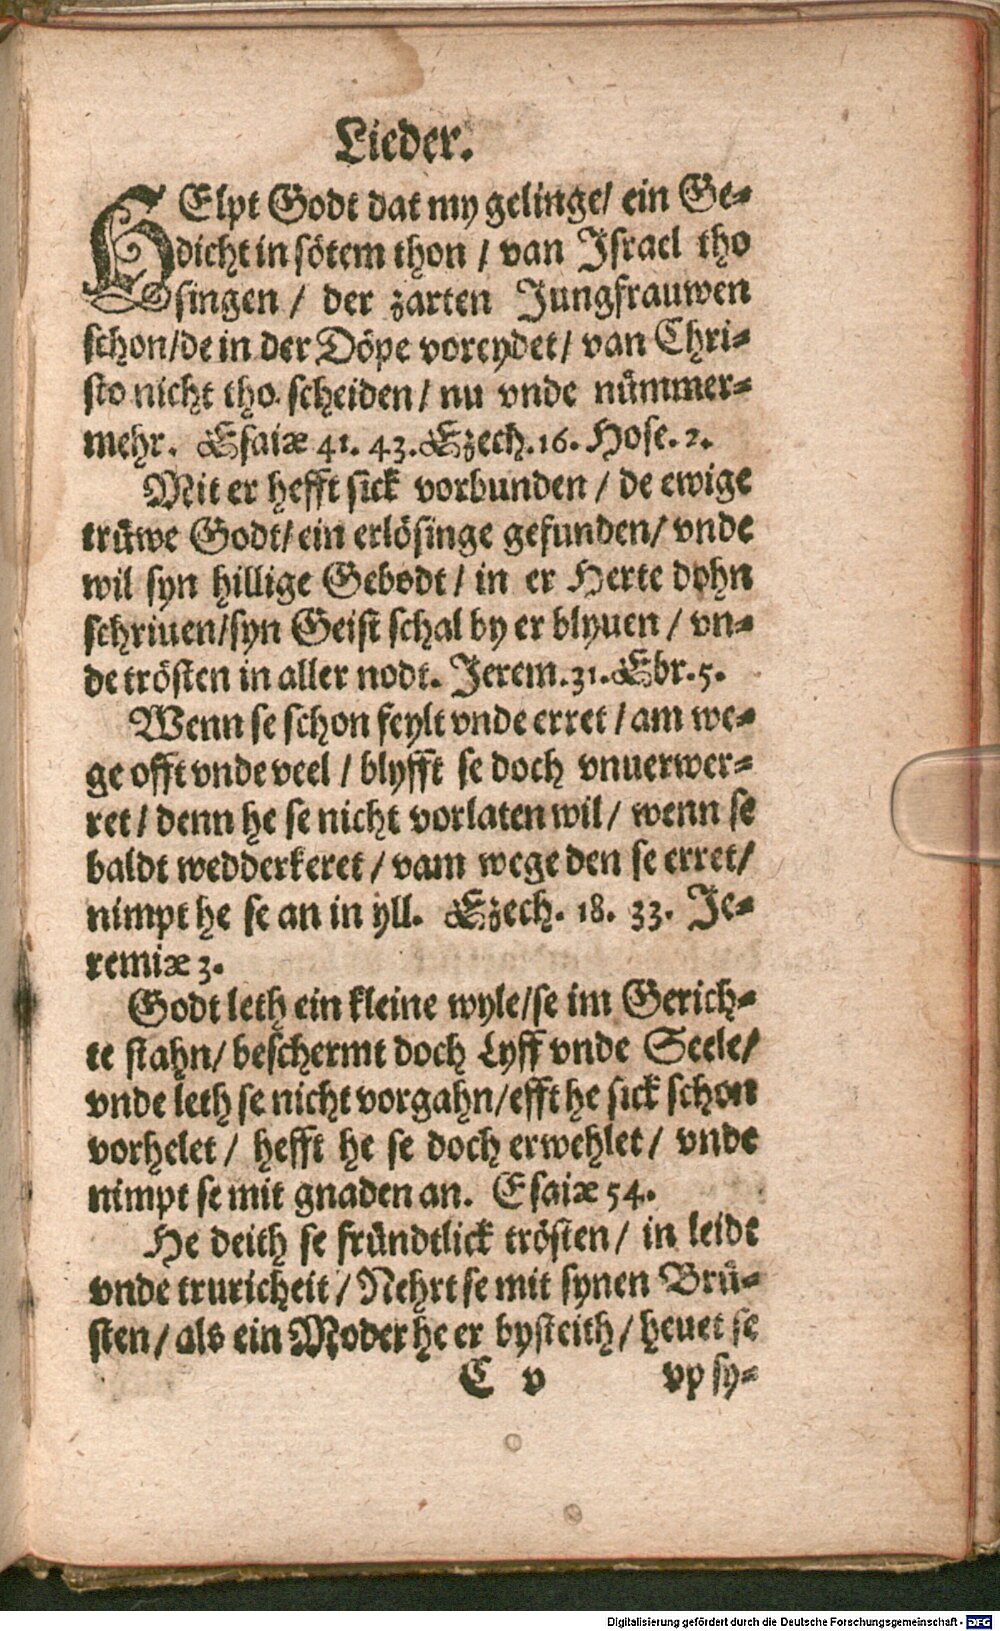 Lieder.
HElpt Godt dat my gelinge/ ein Ge-
dicht in sötem thon / van Israel tho
singen / der zarten Jungfrauwen
schon/de in der Döpe voreydet/ van Chri-
sto nicht tho scheiden/ nu vnde nümmer-
mehr. Esaiæ 41. 43. Ezech. 16. Hose. 2.
Mit er hefft sick vorbunden / de ewige
trüwe Godt/ ein erlösinge gefunden/ vnde
wil syn hillige Gebodt / in er Herte dohn
schriuen/syn Geist schal by er blyuen / vn-
de trösten in aller nodt. Jerem. 31. Ebr. 5.
Wenn se schon feylt vnde erret / am we-
ge offt vnde veel / blyfft se doch vnuerwer-
ret / denn he se nicht vorlaten wil / wenn se
baldt wedderkeret / vam wege den se erret/
nimpt he se an in yll. Ezech. 18. 33. Je-
remiæ 3.
Godt leth ein kleine wyle/se im Gerich-
te stahn/ beschermt doch Lyff vnde Seele/
vnde leth se nicht vorgahn/efft he sick schon
vorhelet / hefft he se doch erwehlet / vnde
nimpt se mit gnaden an. Esaiæ 54.
He deith se fründtlick trösten / in leide
vnde truricheit / Nehrt se mit synen Brü-
sten / als ein Moder he er bysteith / heuet se
C v vp sy-
Digitalisierung gefördert durch die Deutsche Forschungsgemeinschaft - DFG